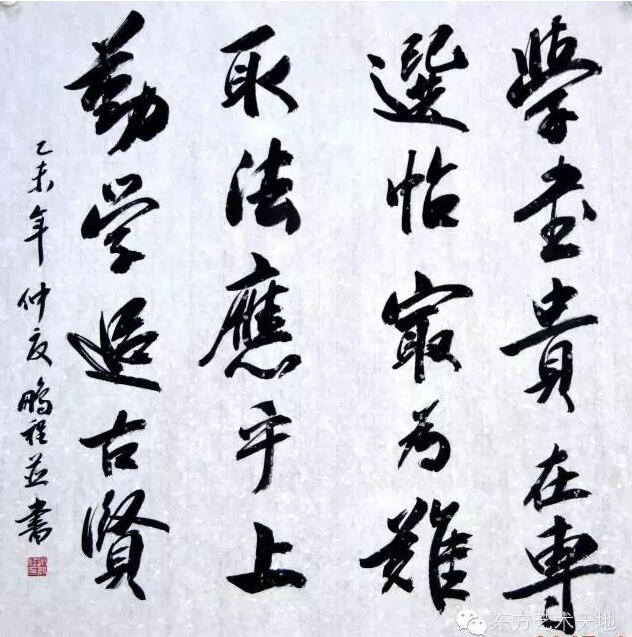 學書貴在專
選帖最為難
取法應乎上
勤学追古賢
乙未年仲夏鵬程並書
东方艺术天地